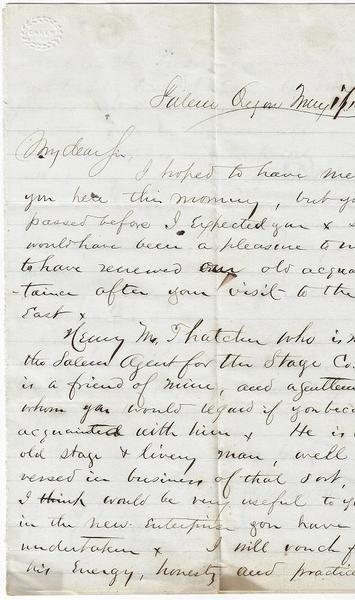 Salem, Oregon May 1
My dear Sir,
I hoped to have me
you here this morning, but yo
passed before I Expected you &
would have been a pleasure to
to have renewed our old acqua
-tance after your visit to the
East &
Henry M. Thatcher who is
the Salem Agent for the Stage Co.
is a friend of mine, and a gentlem
whom you would regard if you beca
acquainted with him & He is
old stage & livery man, well
versed in business of that sort,
I think would be very useful to yo
in the new Enterprise you have
undertaken & I will vouch f
his Energy, honesty and practic